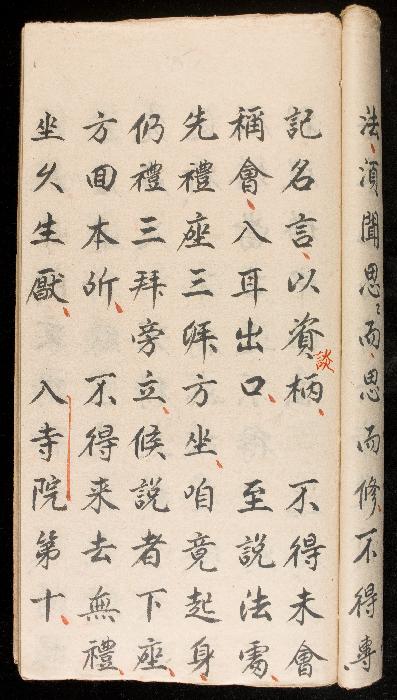 法、湏聞思〻而、思而修、不得專
記名言、以資談柄、不得未會
稱會、入耳出口、至說法處、
先禮座三拜方坐、咱竟起身、
仍禮三拜旁立、候說者下座、
方囬本所、不得来去無禮、
坐久生厭、入寺院第十、